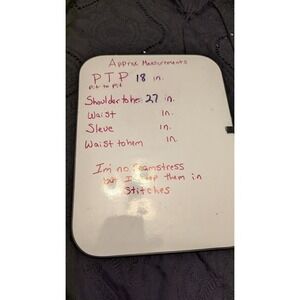 Approx Measurements
PTP 18 in.
Pit to Pit
Shoulder to he: 27 in.
Waist in.
Sleve in.
Waist to hem in.
Im no seamstress
but I keep them in
Stitches